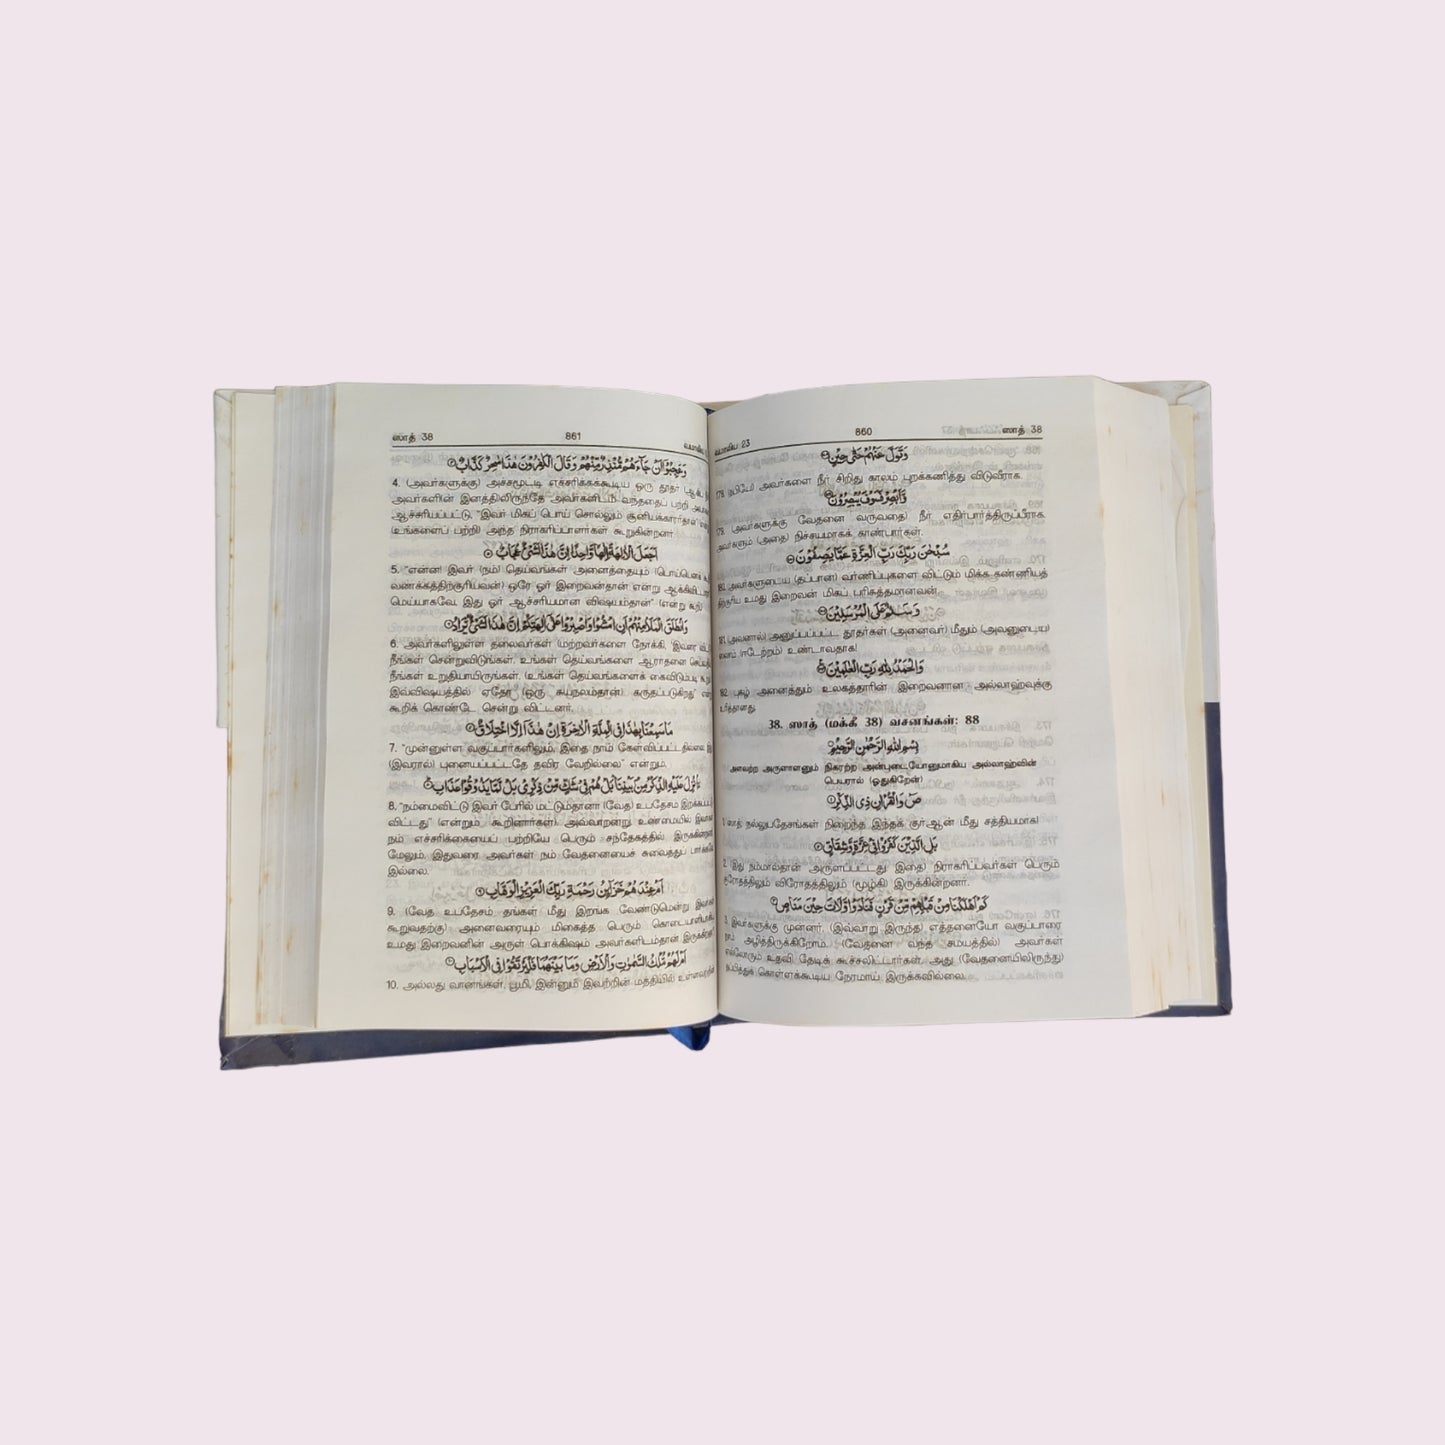 860
ஸாத் 38
وَتَوَلَّ عَنْهُمْ حَتّٰى حِيْنٍ
178. (நபியே) அவர்களை நீர் சிறிது காலம் புறக்கணித்து விடுவீராக.
وَّاَبْصِرْ فَسَوْفَ يُبْصِرُوْنَ
179. (அவர்களுக்கு வேதனை வருவதை) நீர் எதிர்பார்த்திருப்பீராக.
அவர்களும் (அதை) நிச்சயமாகக் காண்பார்கள்.
سُبْحٰنَ رَبِّكَ رَبِّ الْعِزَّةِ عَمَّا يَصِفُوْنَ
180. அவர்களுடைய (தப்பான) வர்ணிப்புகளை விட்டும் மிக்க கண்ணியத்
திற்குரிய உமது இறைவன் மிகப் பரிசுத்தமானவன்.
وَسَلٰمٌ عَلَى الْمُرْسَلِيْنَ
181. (அவனால்) அனுப்பப்பட்ட தூதர்கள் (அனைவர்) மீதும் (அவனுடைய)
ஸலாம் (ஈடேற்றம்) உண்டாவதாக!
وَالْحَمْدُ لِلّٰهِ رَبِّ الْعٰلَمِيْنَ
182. புகழ் அனைத்தும் உலகத்தாரின் இறைவனான அல்லாஹ்வுக்கு
உரித்தானது.
38. ஸாத் (மக்கீ 38) வசனங்கள்: 88
بِسْمِ اللّٰهِ الرَّحْمٰنِ الرَّحِيْمِ
அளவற்ற அருளாளனும் நிகரற்ற அன்புடையோனுமாகிய அல்லாஹ்வின்
பெயரால் (ஓதுகிறேன்)
صٓ وَالْقُرْاٰنِ ذِى الذِّكْرِ
1. ஸாத் நல்லுபதேசங்கள் நிறைந்த இந்தக் குர்ஆன் மீது சத்தியமாக!
بَلِ الَّذِيْنَ كَفَرُوْا فِىْ عِزَّةٍ وَّشِقَاقٍ
2. (இது நம்மால்தான் அருளப்பட்டது இதை) நிராகரிப்பவர்கள் பெரும்
குரோதத்திலும் விரோதத்திலும் (மூழ்கி) இருக்கின்றனர்.
كَمْ اَهْلَكْنَا مِنْ قَبْلِهِمْ مِّنْ قَرْنٍ فَنَادَوْا وَّلَاتَ حِيْنَ مَنَاصٍ
3. இவர்களுக்கு முன்னர், (இவ்வாறு இருந்த) எத்தனையோ வகுப்பாரை
நாம் அழித்திருக்கிறோம். (வேதனை வந்த சமயத்தில்) அவர்கள்
எல்லோரும் உதவி தேடிக் கூச்சலிட்டார்கள். அது (வேதனையிலிருந்து)
தப்பித்துக் கொள்ளக்கூடிய நேரமாய் இருக்கவில்லை.
ஸாத் 38
861
وَعَجِبُوْٓا اَنْ جَآءَهُمْ مُّنْذِرٌ مِّنْهُمْ وَقَالَ الْكٰفِرُوْنَ هٰذَا سٰحِرٌ كَذَّابٌ
4. (அவர்களுக்கு) அச்சமூட்டி எச்சரிக்கக்கூடிய ஒரு தூதர்
அவர்களின் இனத்திலிருந்தே அவர்களிடம் வந்ததைப் பற்றி
ஆச்சரியப்பட்டு, "இவர் மிகப் பொய் சொல்லும் சூனியக்காரர்தாம்"
(உங்களைப் பற்றி) அந்த நிராகரிப்பாளர்கள் கூறுகின்றனர்.
اَجَعَلَ الْاٰلِهَةَ اِلٰهًا وَّاحِدًا اِنَّ هٰذَا لَشَىْءٌ عُجَابٌ
5. "என்ன! இவர் (நம்) தெய்வங்கள் அனைத்தையும் (பொய்யெனக்
வணக்கத்திற்குரியவன்) ஒரே ஓர் இறைவன்தான் என்று ஆக்கிவிட்டாரா
மெய்யாகவே, இது ஓர் ஆச்சரியமான விஷயம்தான்" (என்று
وَانْطَلَقَ الْمَلَاُ مِنْهُمْ اَنِ امْشُوْا وَاصْبِرُوْا عَلٰٓى اٰلِهَتِكُمْ اِنَّ هٰذَا لَشَىْءٌ يُّرَادُ
6. அவர்களிலுள்ள தலைவர்கள் (மற்றவர்களை நோக்கி, "இவரை
நீங்கள் சென்றுவிடுங்கள். உங்கள் தெய்வங்களை ஆராதனை
நீங்கள் உறுதியாயிருங்கள். (உங்கள் தெய்வங்களைக் கைவிடும்படி
இவ்விஷயத்தில் ஏதோ (ஒரு சுயநலம்தான்) கருதப்படுகிறது"
கூறிக் கொண்டே சென்று விட்டனர்.
مَا سَمِعْنَا بِهٰذَا فِى الْمِلَّةِ الْاٰخِرَةِ اِنْ هٰذَآ اِلَّا اخْتِلَاقٌ
7. "முன்னுள்ள வகுப்பார்களிலும், இதை நாம் கேள்விப்பட்டதில்லை.
(இவரால்) புனையப்பட்டதே தவிர வேறில்லை" என்றும்,
ءَاُنْزِلَ عَلَيْهِ الذِّكْرُ مِنْۢ بَيْنِنَا بَلْ هُمْ فِىْ شَكٍّ مِّنْ ذِكْرِىْ بَلْ لَّمَّا يَذُوْقُوْا عَذَابِ
8. "நம்மைவிட்டு இவர் பேரில் மட்டும்தானா (வேத) உபதேசம்
விட்டது" (என்றும் கூறினார்கள்). அவ்வாறன்று! உண்மையில்
நம் எச்சரிக்கையைப் பற்றியே பெரும் சந்தேகத்தில் இருக்கின்றனர்.
மேலும், இதுவரை அவர்கள் நம் வேதனையைச் சுவைத்துப் பார்க்கவே
இல்லை.
اَمْ عِنْدَهُمْ خَزَآئِنُ رَحْمَةِ رَبِّكَ الْعَزِيْزِ الْوَهَّابِ
9. (வேத உபதேசம் தங்கள் மீது இறங்க வேண்டுமென்று
கூறுவதற்கு) அனைவரையும் மிகைத்த பெரும் கொடையாளியாகிய
உமது இறைவனின் அருள் பொக்கிஷம் அவர்களிடம்தான்
اَمْ لَهُمْ مُّلْكُ السَّمٰوٰتِ وَالْاَرْضِ وَمَا بَيْنَهُمَا فَلْيَرْتَقُوْا فِى الْاَسْبَابِ
10. அல்லது வானங்கள், பூமி, இன்னும் இவற்றின் மத்தியில் உள்ளவற்றின்